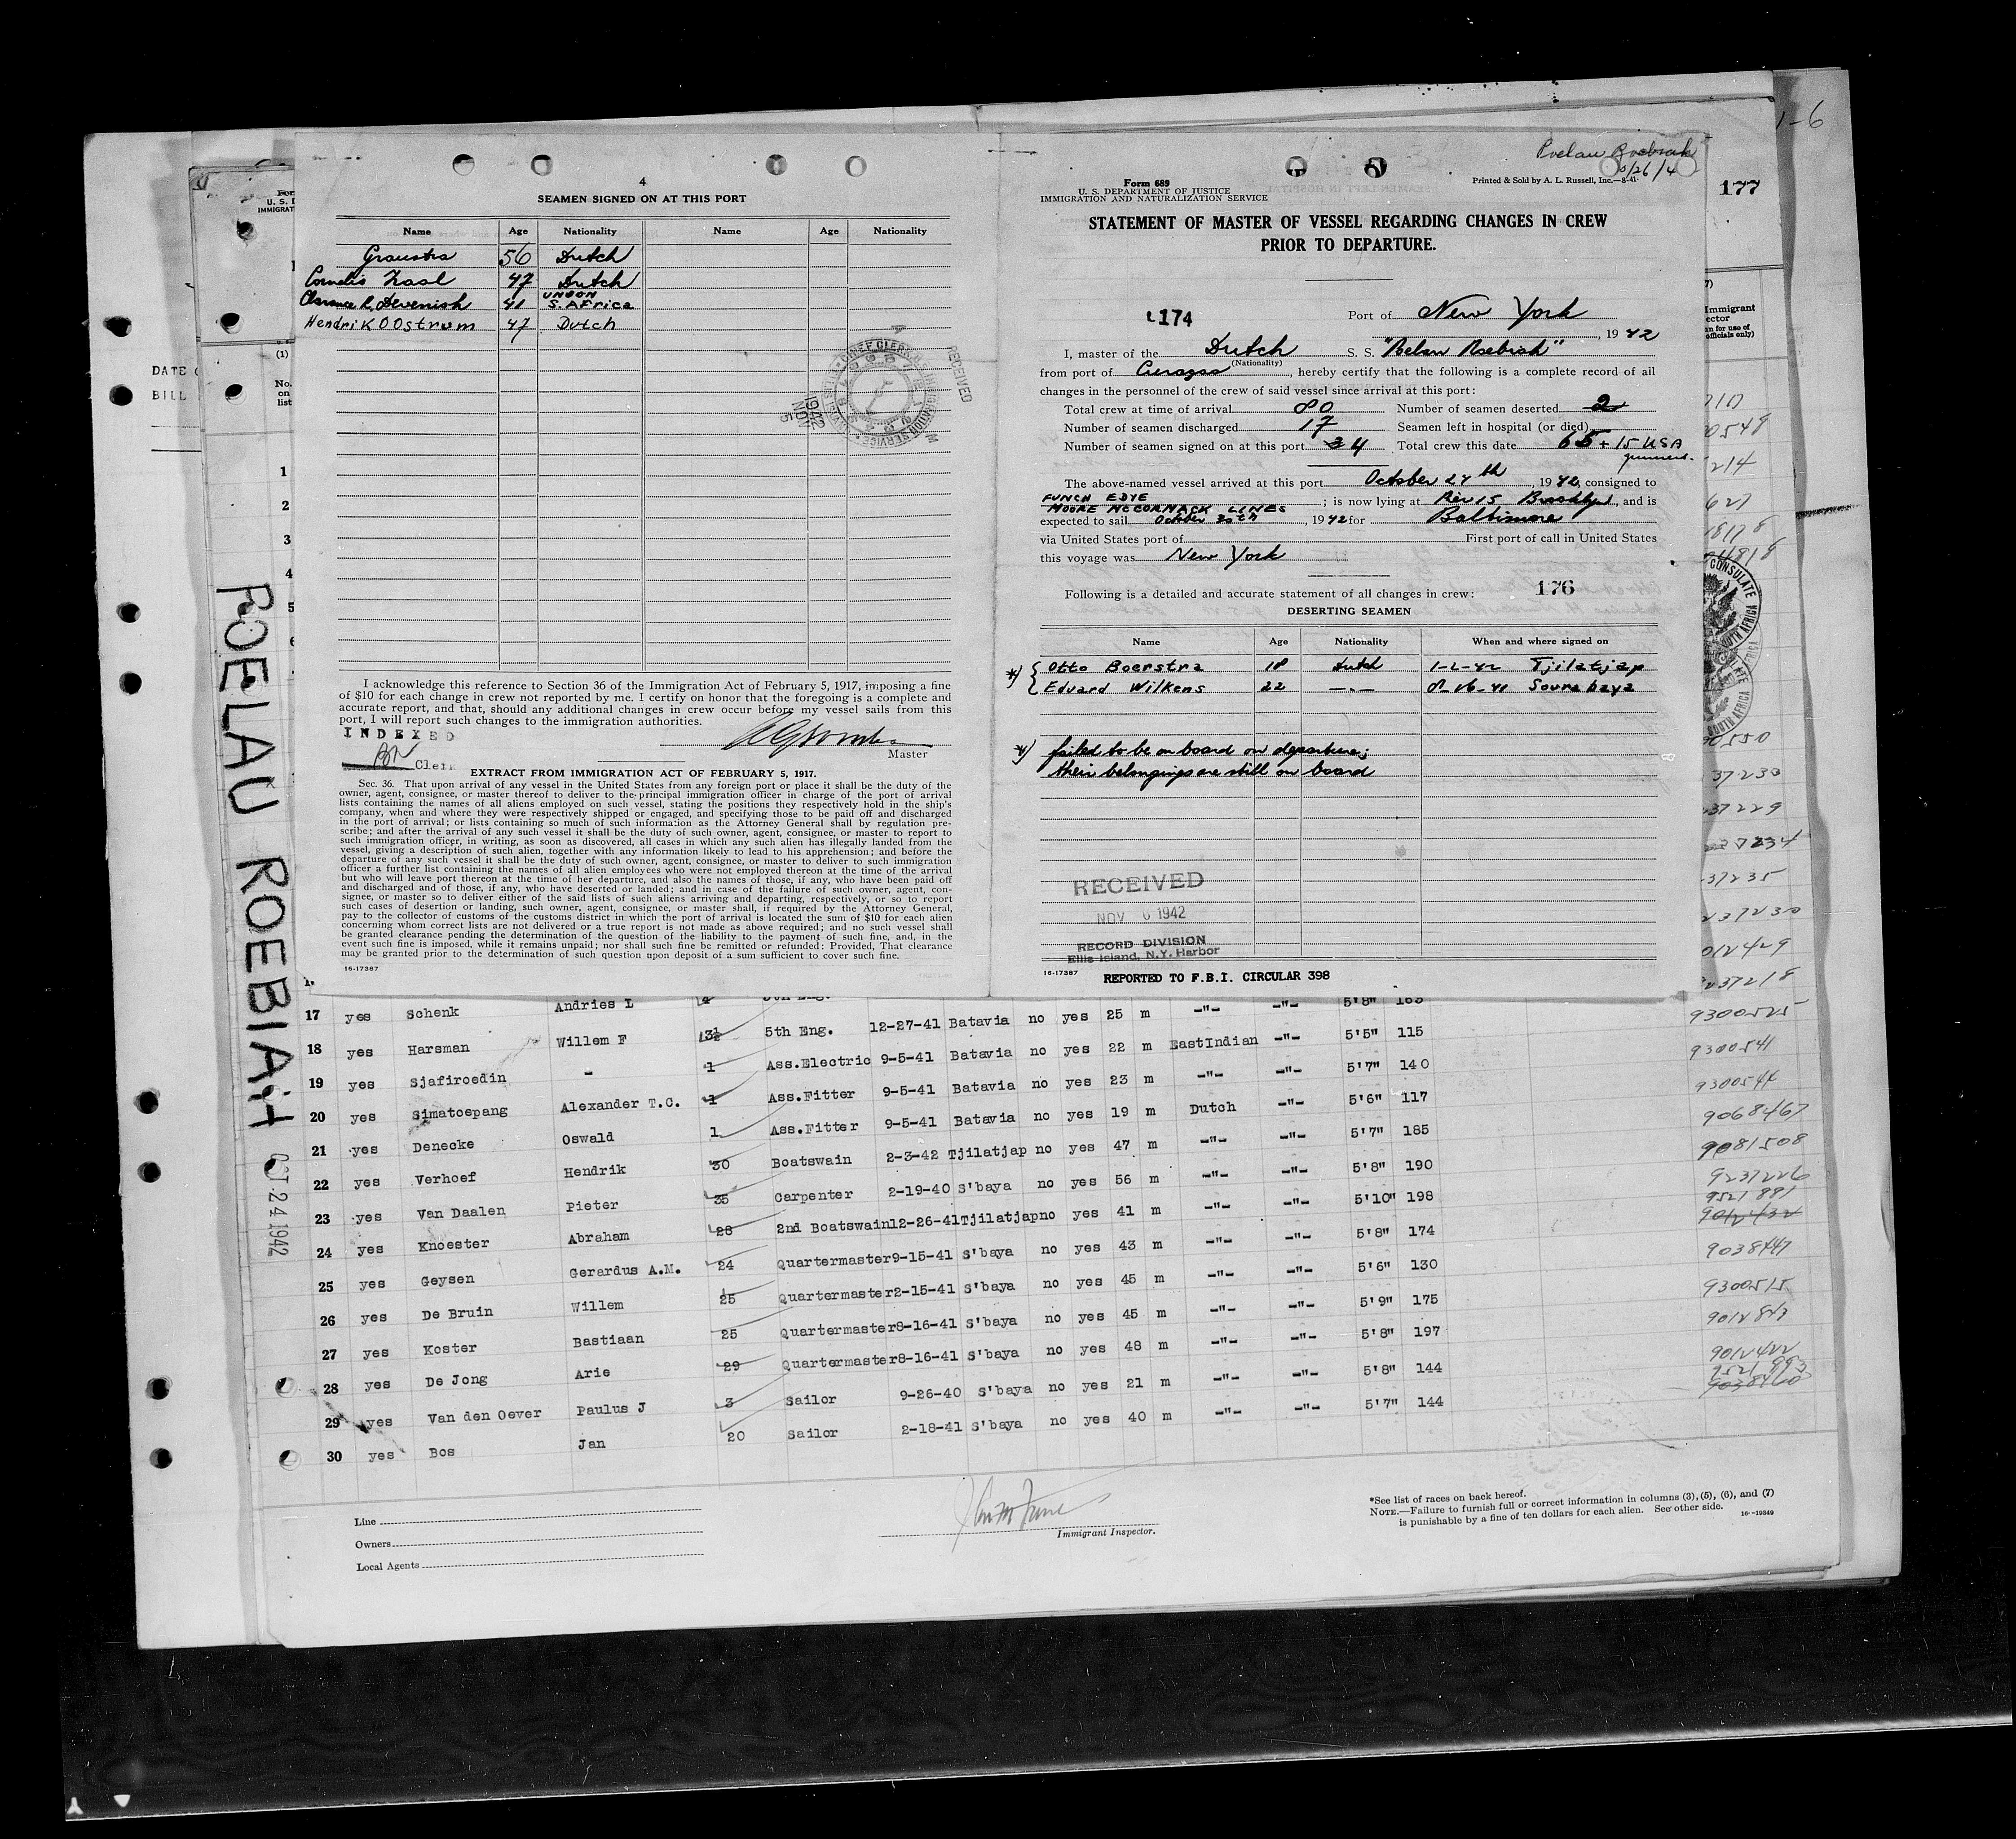 1-6
177
4
SEAMEN SIGNED ON AT THIS PORT
Name Age Nationality Name Age Nationality
Graustra 56 Dutch
Cornelis Zaal 47 Dutch
Clarence R. Devenish 41 UNION S. AFrica
Hendrik OOstrum 47 Dutch
CHIEF CLERK
IMMIGRATION SERVICE
RECEIVED
1942 NOV 5
I acknowledge this reference to Section 36 of the Immigration Act of February 5, 1917, imposing a fine
of $10 for each change in crew not reported by me. I certify on honor that the foregoing is a complete and
accurate report, and that, should any additional changes in crew occur before my vessel sails from this
port, I will report such changes to the immigration authorities.
INDEXED
Clerk
Master
EXTRACT FROM IMMIGRATION ACT OF FEBRUARY 5, 1917.
Sec. 36. That upon arrival of any vessel in the United States from any foreign port or place it shall be the duty of the
owner, agent, consignee, or master thereof to deliver to the principal immigration officer in charge of the port of arrival
lists containing the names of all aliens employed on such vessel, stating the positions they respectively hold in the ship's
company, when and where they were respectively shipped or engaged, and specifying those to be paid off and discharged
in the port of arrival; or lists containing so much of such information as the Attorney General shall by regulation pre-
scribe; and after the arrival of any such vessel it shall be the duty of such owner, agent, consignee, or master to report to
such immigration officer, in writing, as soon as discovered, all cases in which any such alien has illegally landed from the
vessel, giving a description of such alien, together with any information likely to lead to his apprehension; and before the
departure of any such vessel it shall be the duty of such owner, agent, consignee, or master to deliver to such immigration
officer a further list containing the names of all alien employees who were not employed thereon at the time of the arrival
but who will leave port thereon at the time of her departure, and also the names of those, if any, who have been paid off
and discharged and of those, if any, who have deserted or landed; and in case of the failure of such owner, agent, con-
signee, or master so to deliver either of the said lists of such aliens arriving and departing, respectively, or so to report
such cases of desertion or landing, such owner, agent, consignee, or master shall, if required by the Attorney General,
pay to the collector of customs of the customs district in which the port of arrival is located the sum of $10 for each alien
concerning whom correct lists are not delivered or a true report is not made as above required; and no such vessel shall
be granted clearance pending the determination of the question of the liability to the payment of such fine, and, in the
event such fine is imposed, while it remains unpaid; nor shall such fine be remitted or refunded: Provided, That clearance
may be granted prior to the determination of such question upon deposit of a sum sufficient to cover such fine.
16-17387
Poelau Roebiah
10/26/4
Form 689
U. S. DEPARTMENT OF JUSTICE
IMMIGRATION AND NATURALIZATION SERVICE
Printed & Sold by A. L. Russell, Inc.—8-41-
STATEMENT OF MASTER OF VESSEL REGARDING CHANGES IN CREW
PRIOR TO DEPARTURE.
174
Port of New York
, 1942
I, master of the Dutch S. S. "Pelau Roebiah"
(Nationality)
from port of Curaçao, hereby certify that the following is a complete record of all
changes in the personnel of the crew of said vessel since arrival at this port:
Total crew at time of arrival 80 Number of seamen deserted 2
Number of seamen discharged 17 Seamen left in hospital (or died)
Number of seamen signed on at this port 34 Total crew this date 65 + 15 USA
gunners.
The above-named vessel arrived at this port October 24th, 1942, consigned to
FUNCH EDYE
MOORE McCORMACK LINES; is now lying at Pier 15 Brooklyn, and is
expected to sail October 30th, 1942 for Baltimore
via United States port of First port of call in United States
this voyage was New York
Following is a detailed and accurate statement of all changes in crew: 176
DESERTING SEAMEN
Name Age Nationality When and where signed on
*) Otto Boerstra 18 dutch 1-2-42 Tjilatjap
Eduard Wilkens 22 —"— 8-16-41 Sourabaya
*) failed to be on board on departure;
their belongings are still on board
RECEIVED
NOV 6 1942
RECORD DIVISION
Ellis Island, N.Y. Harbor
16-17387
REPORTED TO F.B.I. CIRCULAR 398
POELAU ROEBIAH
OCT 24 1942
17 yes Schenk Andries L 4 5th Eng.
12-27-41 Batavia no yes 25 m -"- -"- 5'8" 163 9300525
18 yes Harsman Willem F 3½ 5th Eng. 9-5-41 Batavia no yes 22 m EastIndian -"- 5'5" 115 9300541
19 yes Sjafiroedin - 1 Ass.Electric 9-5-41 Batavia no yes 23 m -"- -"- 5'7" 140 9300544
20 yes Simatoepang Alexander T.C. 1 Ass.Fitter 9-5-41 Batavia no yes 19 m Dutch -"- 5'6" 117 9068467
21 yes Denecke Oswald 1 Ass.Fitter 2-3-42 Tjilatjap no yes 47 m -"- -"- 5'7" 185 9081508
22 yes Verhoef Hendrik 30 Boatswain 2-19-40 S'baya no yes 56 m -"- -"- 5'8" 190 9237226
23 yes Van Daalen Pieter 35 Carpenter 12-26-41 Tjilatjap no yes 41 m -"- -"- 5'10" 198 9521891
24 yes Knoester Abraham 28 2nd Boatswain 9-15-41 S'baya no yes 43 m -"- -"- 5'8" 174 9038447
25 yes Geysen Gerardus A.M. 24 Quartermaster 2-15-41 S'baya no yes 45 m -"- -"- 5'6" 130 9300515
26 yes De Bruin Willem 25 Quartermaster 8-16-41 S'baya no yes 45 m -"- -"- 5'9" 175
27 yes Koster Bastiaan 25 Quartermaster 8-16-41 S'baya no yes 48 m -"- -"- 5'8" 197 9012422
28 yes De Jong Arie 29 Quartermaster 9-26-40 S'baya no yes 21 m -"- -"- 5'8" 144
29 yes Van den Oever Paulus J 3 Sailor 2-18-41 S'baya no yes 40 m -"- -"- 5'7" 144
30 yes Bos Jan 20 Sailor
Line
Owners
Local Agents
Immigrant Inspector.
*See list of races on back hereof.
NOTE.—Failure to furnish full or correct information in columns (3), (5), (6), and (7)
is punishable by a fine of ten dollars for each alien. See other side.
16-19349